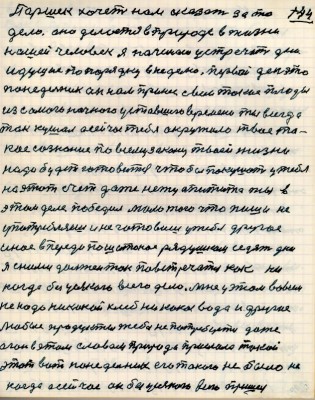 Паршек хочет нам сказат за то
дело. оно делается в природе в жизни
нашей человек я начинаю устречат дни
идущие по порядку в неделю. первой ден это
понеделник он нам принес свои такие плоды
из самого начного уставшего времени ты всегда
так кушал а сейчас тебя окружило твое та-
кое сознание по всему закону твоей жизни
надо будет готовится чтобы покушат у тебя
на этот счет даже нету апитита ты в
этом деле победил мало того что пищи не
употребляеш и не готовиш у тебя другое
иное впереди пошло такое рядушком седят дни
я с ними должен так повстречатся как ни
когда бы целково всего дело. Мне у этом вовсим
не надо никакой хлеб ни кака вода и другое
любые продукти тебе не потребуются даже
огон в этом словам природа прислала такой
этот вот понеделник его такого не было не
когда а сейчас он бы целково день пришел